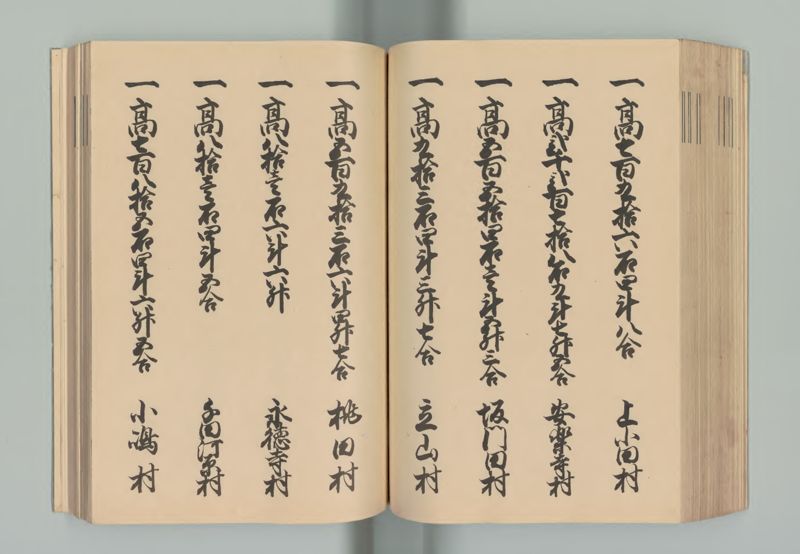 一高七百五拾六石四斗八合 上小田村
一高弐千弐百七拾八石五斗七升五合 安楽寺村
一高五百五拾四石壱斗五升三合 坂門田村
一高九拾三石四斗三升七合 立山村
一高五百五拾三石六斗四升七合 桃田村
一高八拾壱石六斗六升 永徳寺村
一高八拾壱石四斗五合 村
一高七百八拾五石四斗六升五合 小嶋村